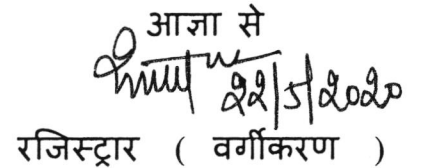 आज्ञा से
22/5/2020
रजिस्ट्रार ( वर्गीकरण )